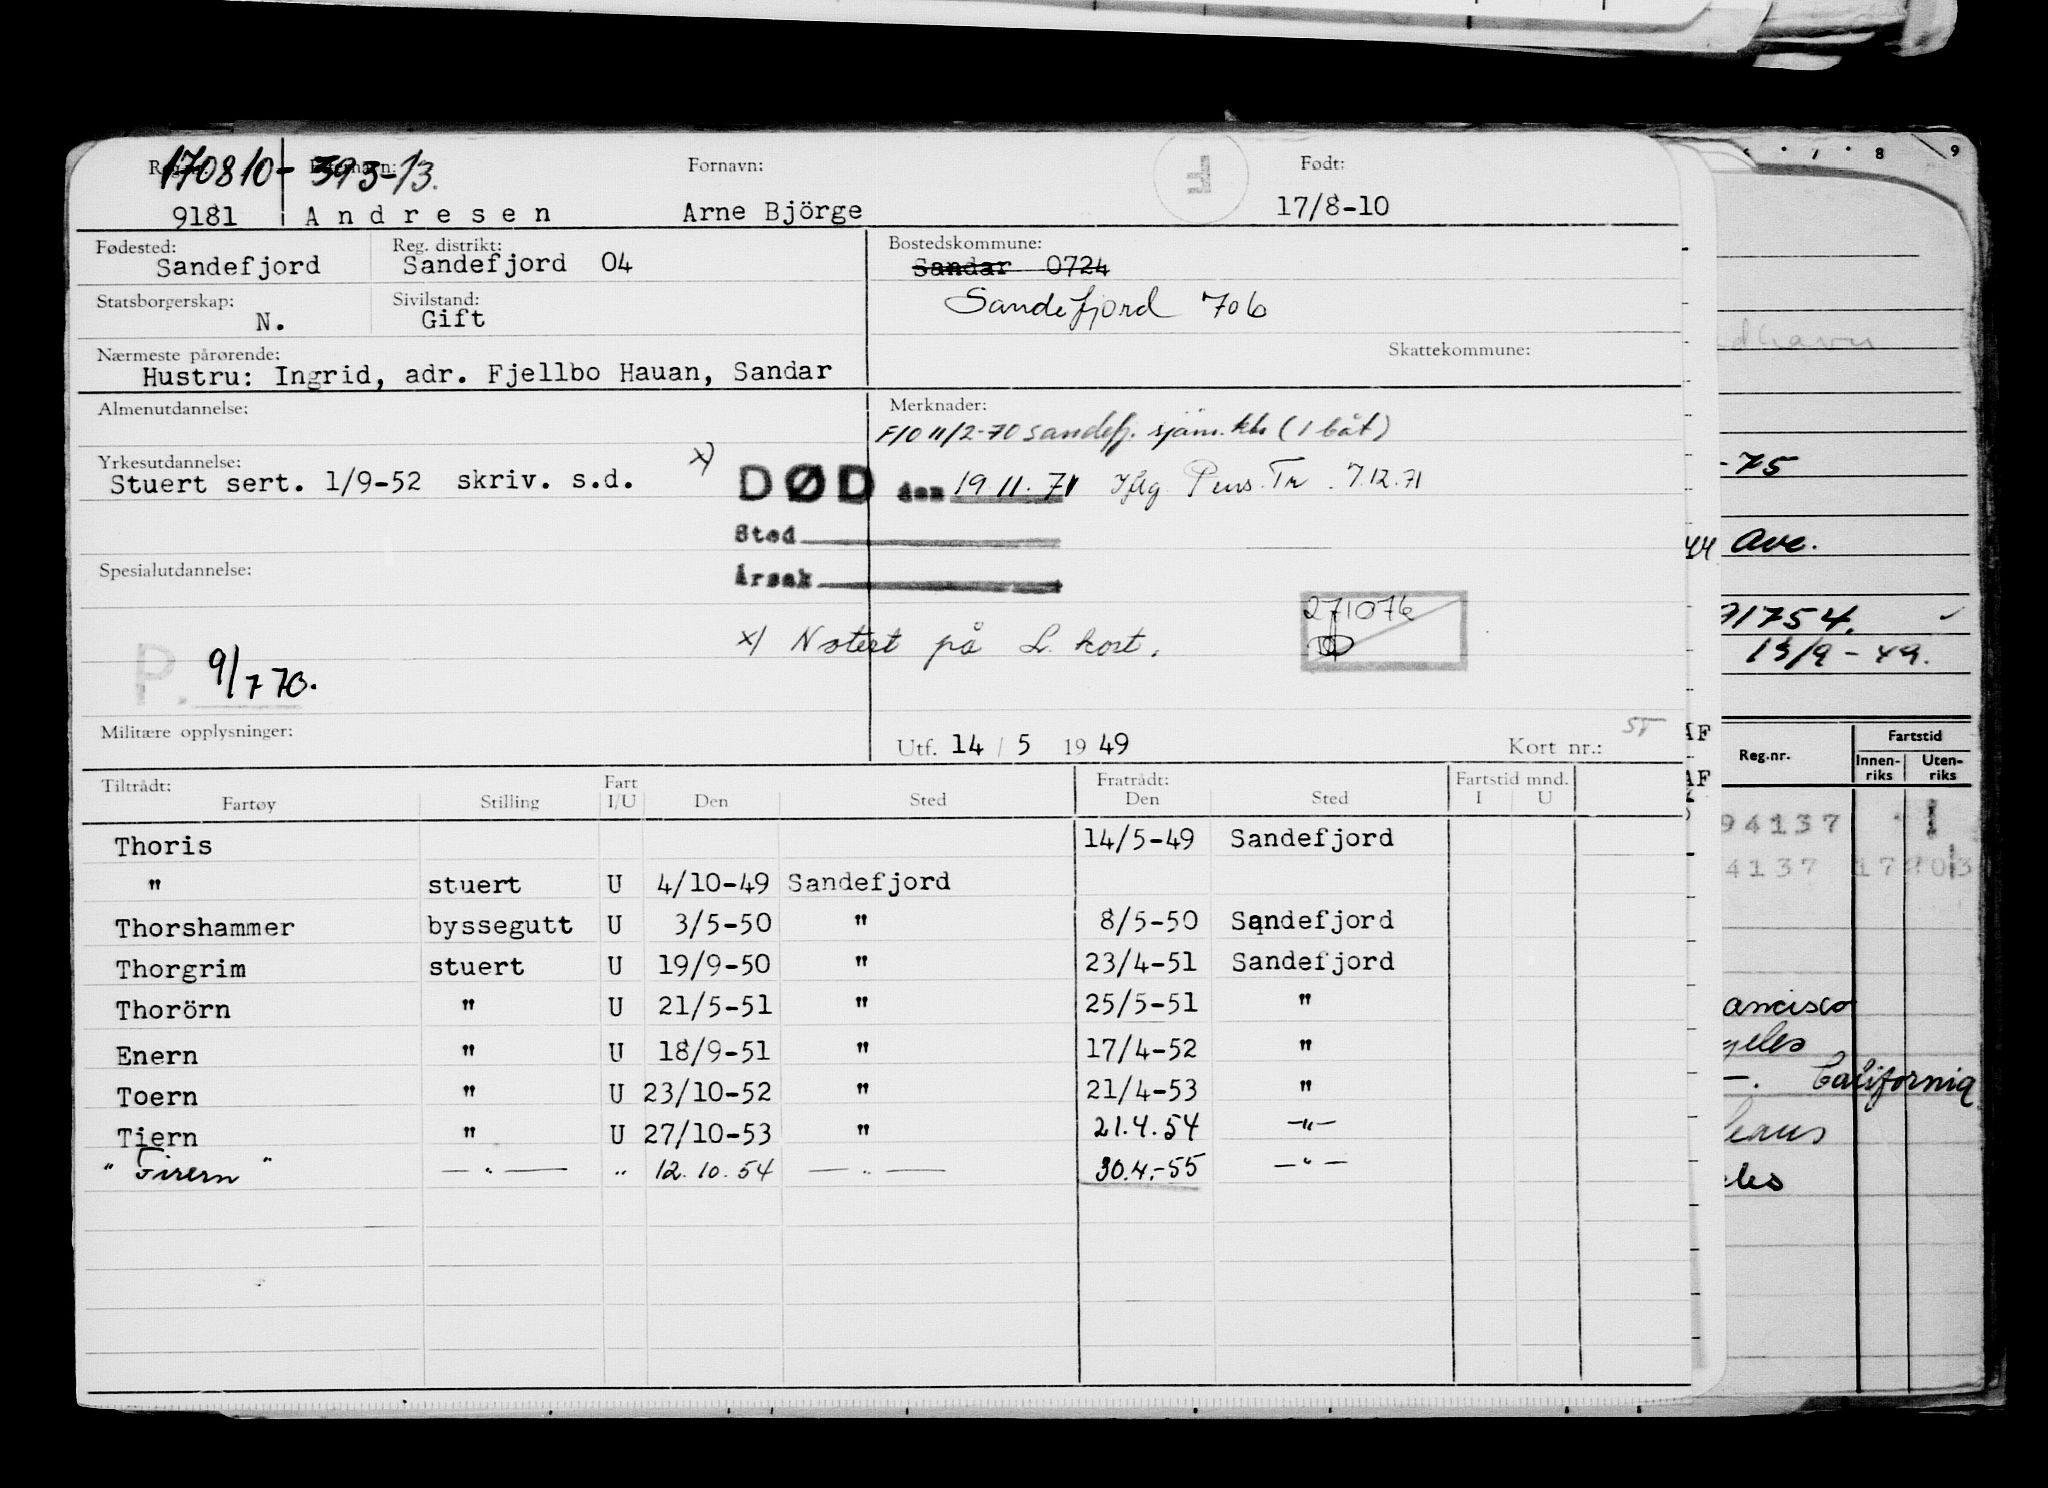 Fornavn: Født:
170810- 393-13.
9181 Andresen Arne Björge 17/8-10
Fødested: Reg. distrikt: Bostedskommune:
Sandefjord Sandefjord 04 Sandar 0724
Statsborgerskap: Sivilstand:
N. Gift Sandefjord 706
Nærmeste pårørende: Skattekommune:
Hustru: Ingrid, adr. Fjellbo Hauan, Sandar
Almenutdannelse: Merknader:
F/O 11/2-70 Sandefj. sjøm.kt. (1 båt)
Yrkesutdannelse:
Stuert sert. 1/9-52 skriv. s.d. x) DØD den 19.11.71 Iflg. Pens. Tr. 7.12.71
Sted
Spesialutdannelse: Årsak
271076
x) Notert på L. kort.
P. 9/7 70.
Militære opplysninger: Utf. 14 / 5 1949 Kort nr.:
Tiltrådt: Fart Fratrådt: Fartstid mnd.
Fartøy Stilling I/U Den Sted Den Sted I U
Thoris 14/5-49 Sandefjord
" stuert U 4/10-49 Sandefjord
Thorshammer byssegutt U 3/5-50 " 8/5-50 Sandefjord
Thorgrim stuert U 19/9-50 " 23/4-51 Sandefjord
Thorörn " U 21/5-51 " 25/5-51 "
Enern " U 18/9-51 " 17/4-52 "
Toern " U 23/10-52 " 21/4-53 "
Tiern " U 27/10-53 " 21.4.54 -"-
" Firern " -"- " 12.10.54 -"- 30.4.-55 -"-
7 8 9
-75
44 Ave.
71754.
13/9-49.
AF
AF
Reg.nr. Fartstid
Innen- Uten-
riks riks
94137 1
4137
ancisco
geles
-. California
leans
eles